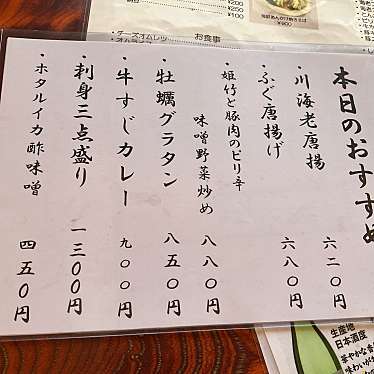 本日のおすすめ
川海老唐揚 六二〇円
ふぐ唐揚げ 六八〇円
姫竹と豚肉のピリ辛
味噌野菜炒め 八八〇円
牡蠣グラタン 八五〇円
牛すじカレー 九〇〇円
刺身三点盛り 一三〇〇円
ホタルイカ酢味噌 四五〇円
お食事
チーズオムレツ
¥200
¥250
¥100
¥900
生産地
日本酒度
華やかな香
味わいが